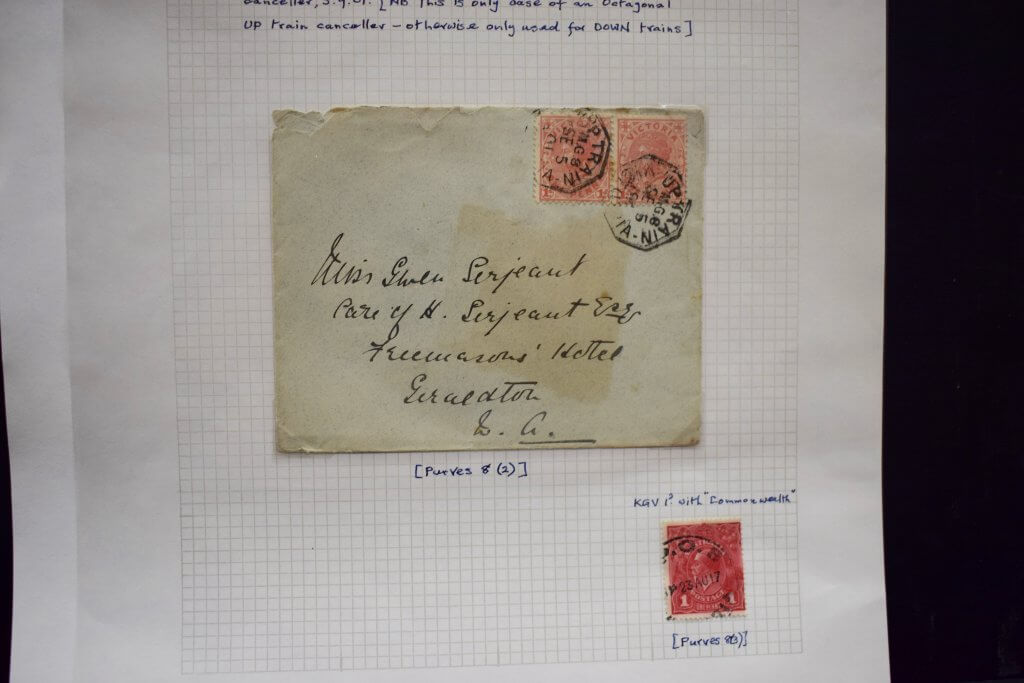 canceller, 5.9.01. [NB This is only case of an Octagonal
UP train canceller - otherwise only used for DOWN trains]
VICTORIA
UP TRAIN
M.G.8
SE 5
01
UP TRAIN
M.G.8
SE 5
Miss Gwen Serjeant
Care of H. Serjeant Esq
Freemasons' Hotel
Geraldton
W. A.
[Purves 8 (2)]
KGV 1d with "Commonwealth"
23 AU 17
POSTAGE
1 ONE PENNY 1
[Purves 8(3)]